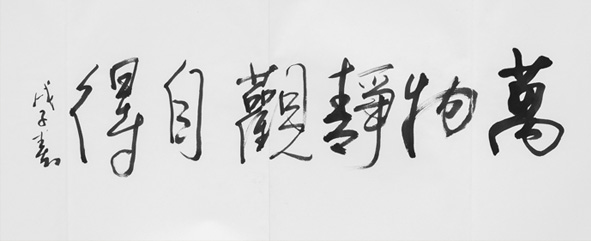 萬物靜觀自得
戊子春